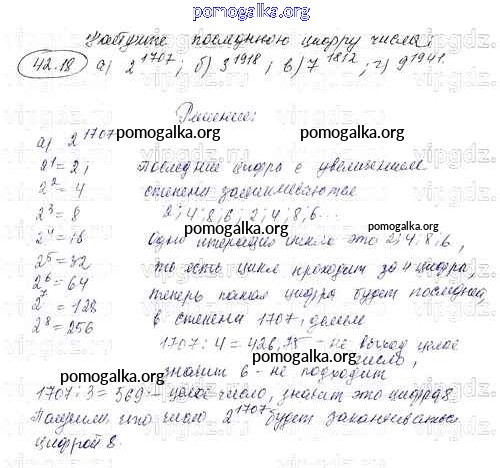 pomogalka.org
Найдите последнюю цифру числа:
42.18 а) 2^1707; б) 3^1918; в) 7^1812; г) 9^1941.
Решение:
pomogalka.org pomogalka.org
а) 2^1707
2^1 = 2; Последние цифры с увеличением
2^2 = 4 степени зацикливаются
2^3 = 8 2; 4; 8; 6; 2; 4; 8; 6...
2^4 = 16 Одна итерация цикла это 2; 4; 8; 6,
2^5 = 32 то есть цикл проходит за 4 цифры,
2^6 = 64 теперь какая цифра будет последней
2^7 = 128 в степени 1707, делим
2^8 = 256
1707 : 4 = 426,75 - не выход целое
число,
значит 6 - не подходит
1707 : 3 = 569 - целое число, значит это цифра 8.
Получим что число 2^1707 будет заканчиваться
цифрой 8.
pomogalka.org